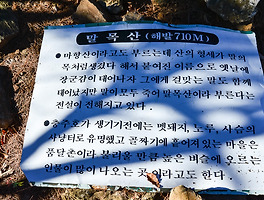 말목산 (해발710M)
● 마항산이라고도 부르는데 산의 형세가 말의
목처럼생겼다 해서 붙여진 이름으로 옛날에
장군감이 태어나자 그에게 걸맞는 말도 함께
태어났지만 말이모두 죽어 말목산이라 부른다는
전설이 전해지고 있다.
● 충주호가 생기기전에는 멧돼지, 노루, 사슴의
사냥터로 유명했고 골짜기에 흩어져있는 마을은
품달촌이라 불리울 만큼 높은 벼슬에 오르는
인물이 많이 나오는 곳이라고도 한다.